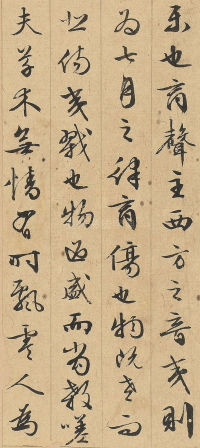 樂也商聲主西方之音夷則
為七月之律商傷也物既老而
悲傷夷戮也物過盛而當殺嗟
夫草木無情有時飄零人為